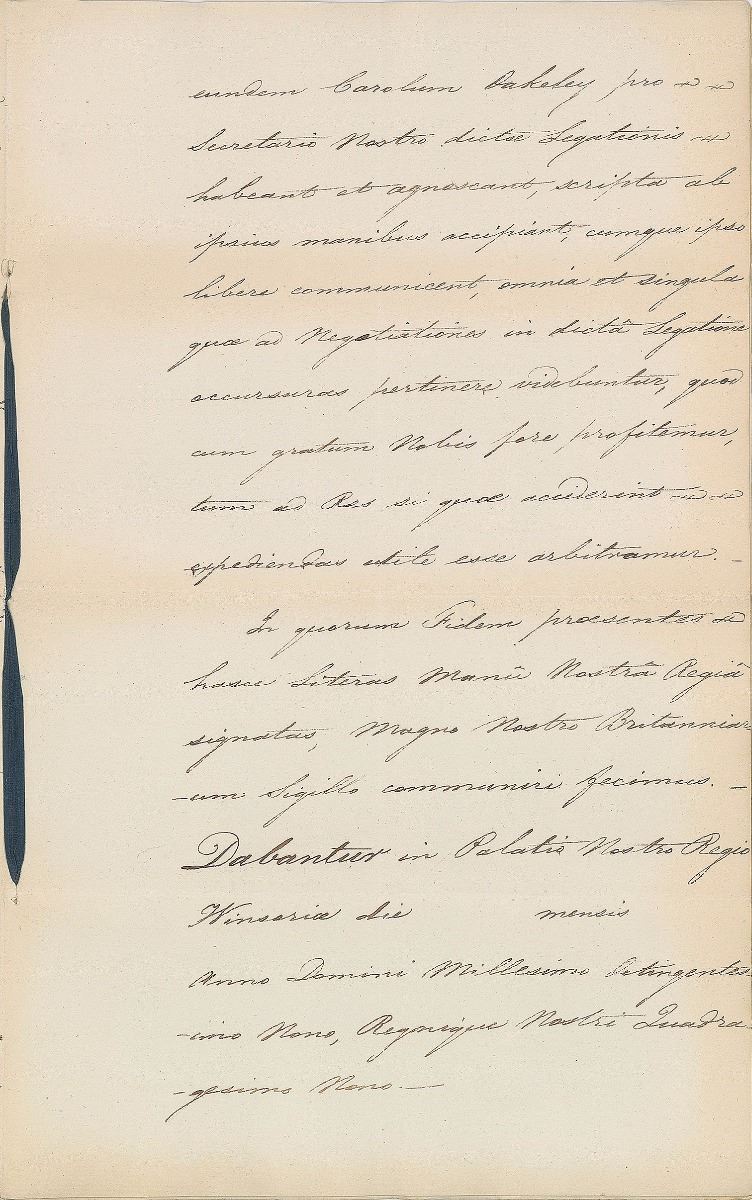 eundem Carolum Oakeley pro
Secretario Nostro dictæ Legationis
habeant et agnoscant, scripta ab
ipsius manibus accipiant, cumque ipso
libere communicent, omnia et singula
quæ ad Negotiationes in dictâ Legatione
occursuras pertinere videbuntur, quod
cum gratum Nobis fore profitemur,
tum ad Res si quæ acciderint
expediendas utile esse arbitramur. -
In quorum Fidem præsentes
hasce Literas Manû Nostrâ Regiâ
signatas, Magno Nostro Britanniar
-um Sigillo communiri fecimus. -
Dabantur in Palatio Nostro Regio
Winsoriæ die mensis
Anno Domini Millesimo Octingentes
-imo Nono, Regnique Nostri Quadra
-gesimo Nono. -